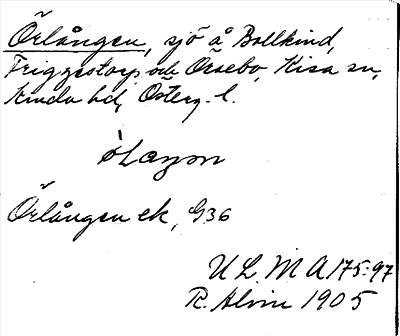 Örlången, sjö å Bollkind,
Friggestorp och Örsebo, Kisa sn,
Kinda hd, Österg. l.
òlaŋən
Örlången ek, G36
U L M A 175:97
R. Alvin 1905